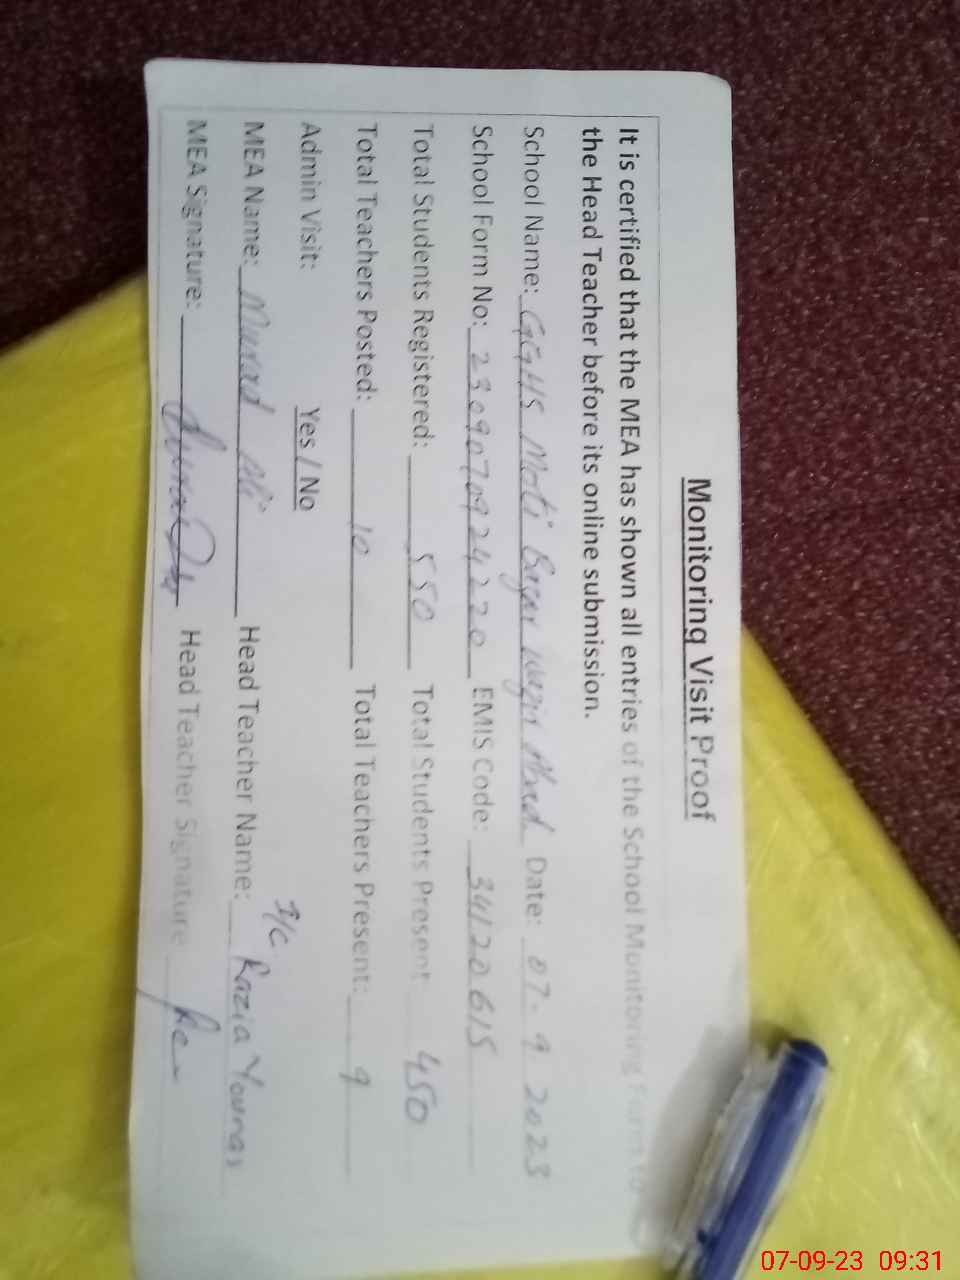 Monitoring Visit Proof
It is certified that the MEA has shown all entries of the School Monitoring Form to
the Head Teacher before its online submission.
School Name: GGHS Moti Date: 07-9 2023
School Form No: 230907092422 0 EMIS Code: 34120615
Total Students Registered: 550 Total Students Present 450
Total Teachers Posted: 10 Total Teachers Present: 9
Admin Visit: Yes / No
I/C
MEA Name: Murad Ali Head Teacher Name: Razia Younas
MEA Signature: Head Teacher Signature
07-09-23 09:31